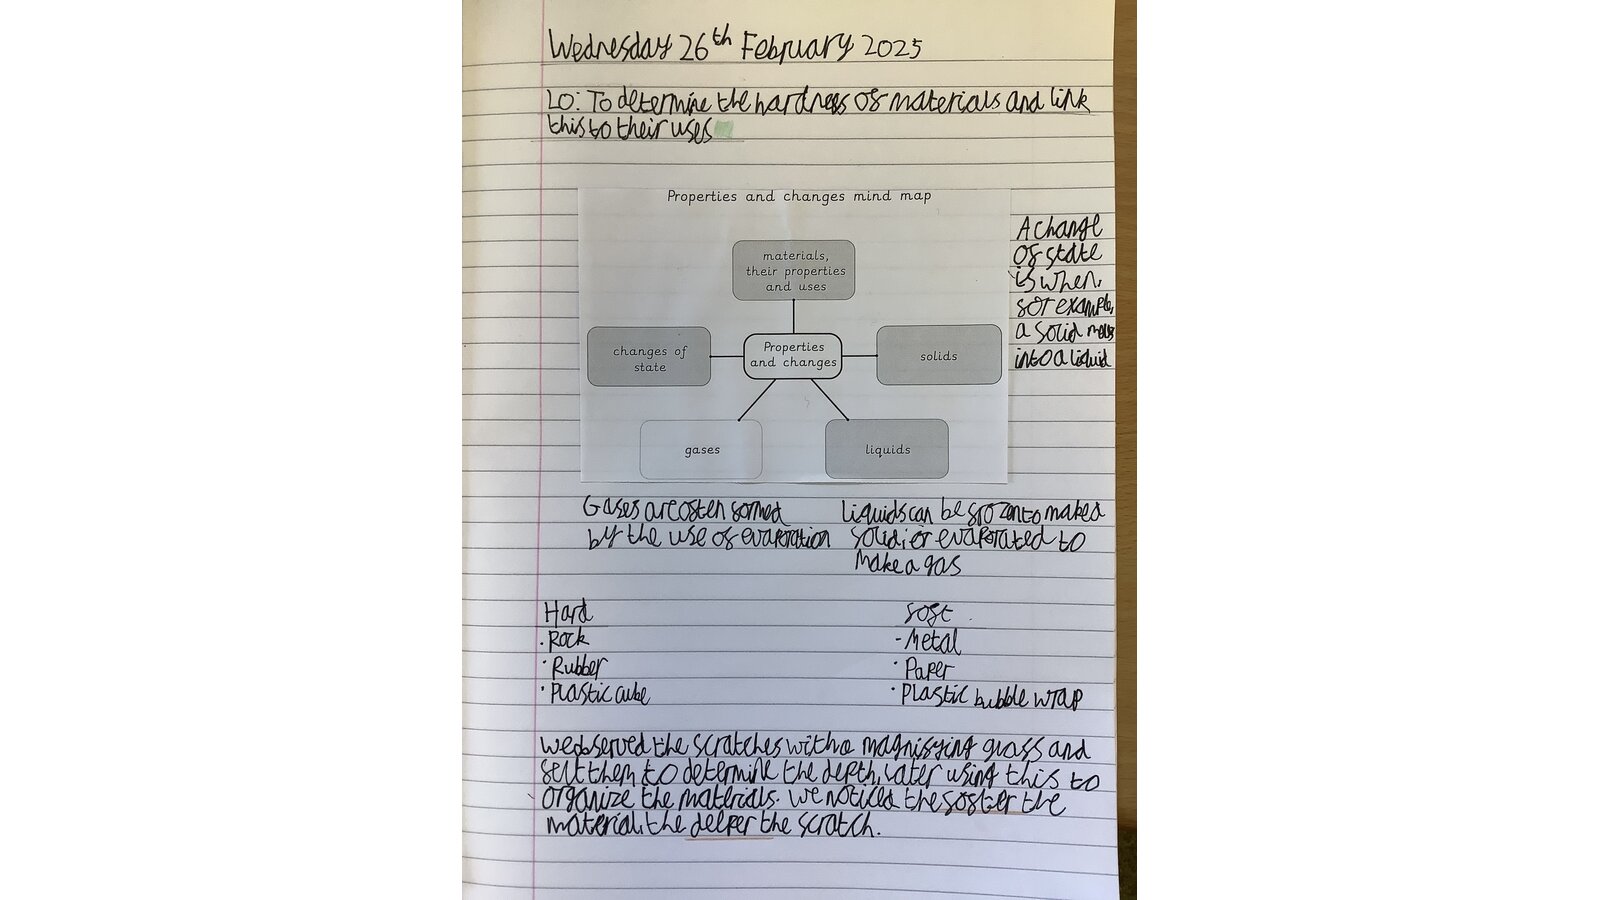 Wednesday 26th February 2025
LO: To determine the hardness of materials and link
this to their uses
Properties and changes mind map
materials,
their properties
and uses
changes of
state
Properties
and changes
solids
gases
liquids
A change
of state
is when,
for example,
a solid melts
into a liquid
Gases are often formed
by the use of evaporation
Liquids can be frozen to make a
solid; or evaporated to
make a gas
Hard
· Rock
· Rubber
· Plastic cube
Soft
- Metal
· Paper
· Plastic bubble wrap
We observed the scratches with a magnifying glass and
felt them to determine the depth, later using this to
organize the materials. We noticed the softer the
material, the deeper the scratch.